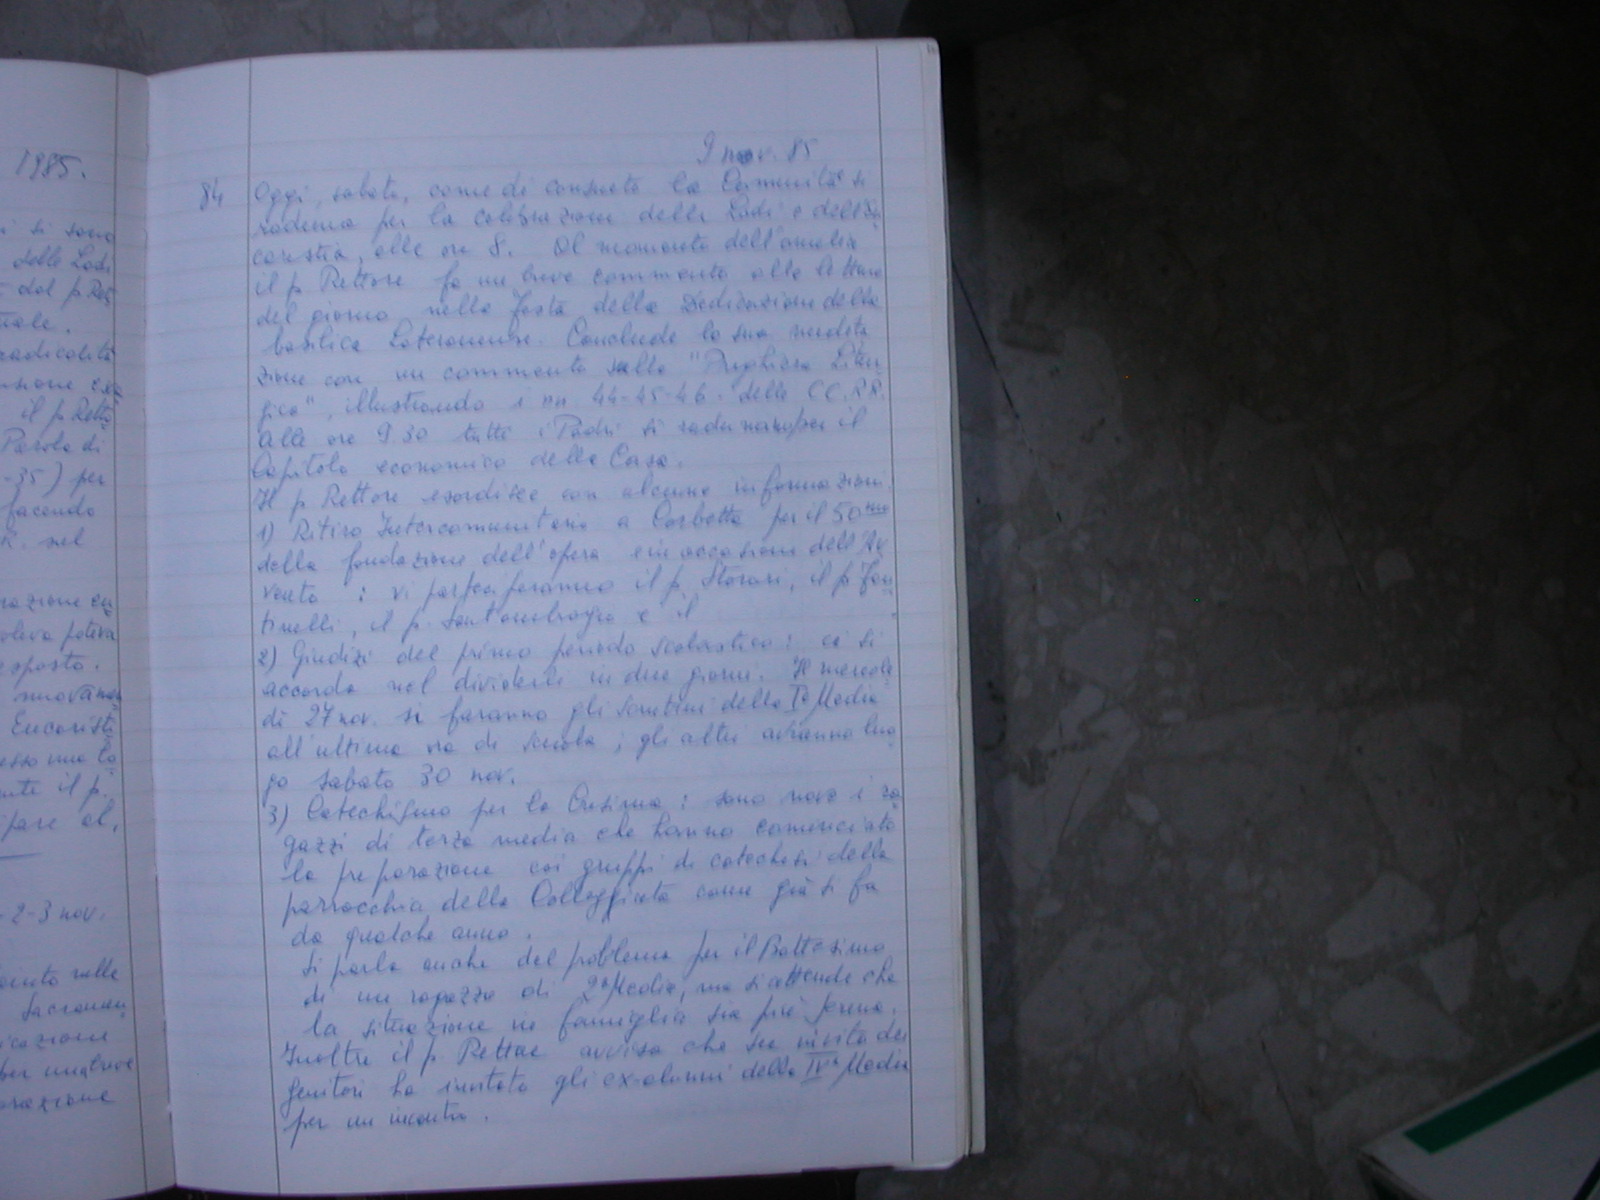 1985.
i si sono
delle Lodi
dal p Ret
tale.
radicalità
nsione
il p. Rett
Parola di
-35) per
facendo
R. nel
razione
oleva poteva
esposto.
nuovamen
Eucaristi
esso
il p.
ipare al.
- 2-3 nov.
nelle
Sacramen
icazione
per una breve
orazione
9 nov. 85
84 Oggi, sabato, come di consueto la Comunità si
raduna per la celebrazione delle Lodi e dell'Eu
caristia, alle ore 8. Al momento dell'omelia
il p Rettore fa un breve commento alle letture
del giorno nella festa della Dedicazione della
basilica Lateranense. Conclude la sua medita
zione con un commento sulla "Preghiera Litur
gica", illustrando i nn. 44-45-46. delle CC.RR.
Alle ore 9 30 tutti i Padri si radunano per il
Capitolo economico della Casa.
Il p Rettore esordisce con alcune informazioni.
1) Ritiro Intercomunitario a Corbetta per il 50mo
della fondazione dell'opera e in occasione dell'Av
vento : vi parteciperanno il p. Storari, il p. Fon
tinelli, il p. Santambrogio e il
2) Giudizi del primo periodo scolastico : ci si
accorda nel dividerli in due giorni. Il mercole
dì 27 nov. si faranno gli scrutini della Ia Media
all'ultima ora di scuola ; gli altri avranno luo
go sabato 30 nov.
3) Catechismo per la Cresima : sono nove i ra
gazzi di terza media che hanno cominciato
la preparazione coi gruppi di catechesi della
parrocchia della Colleggiata come già si fa
da qualche anno.
Si parla anche del problema per il Battesimo
di un ragazzo di 2a Media, ma si attende che
la situazione in famiglia sia più serena.
Inoltre il p. Rettore avvisa che su invito dei
genitori ha invitato gli ex-alunni della IVa Media
per un incontro.